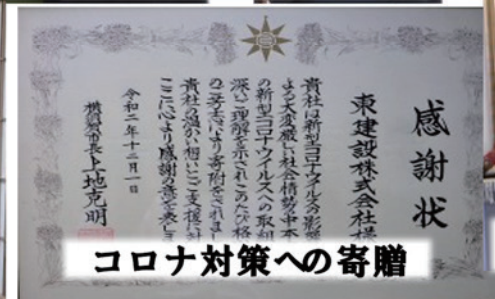 感謝状
東建設株式会社様
貴社は新型コロナウイルスの影響
よる大変厳しい社会情勢の中本
の新型コロナウイルスへの取組
深いご理解を示されこのたび格
のご芳志により寄附をされまし
貴社の温かい想いとご支援に対
ここに心より感謝の意を表し
令和二年十二月一日
横須賀市長上地克明
コロナ対策への寄贈